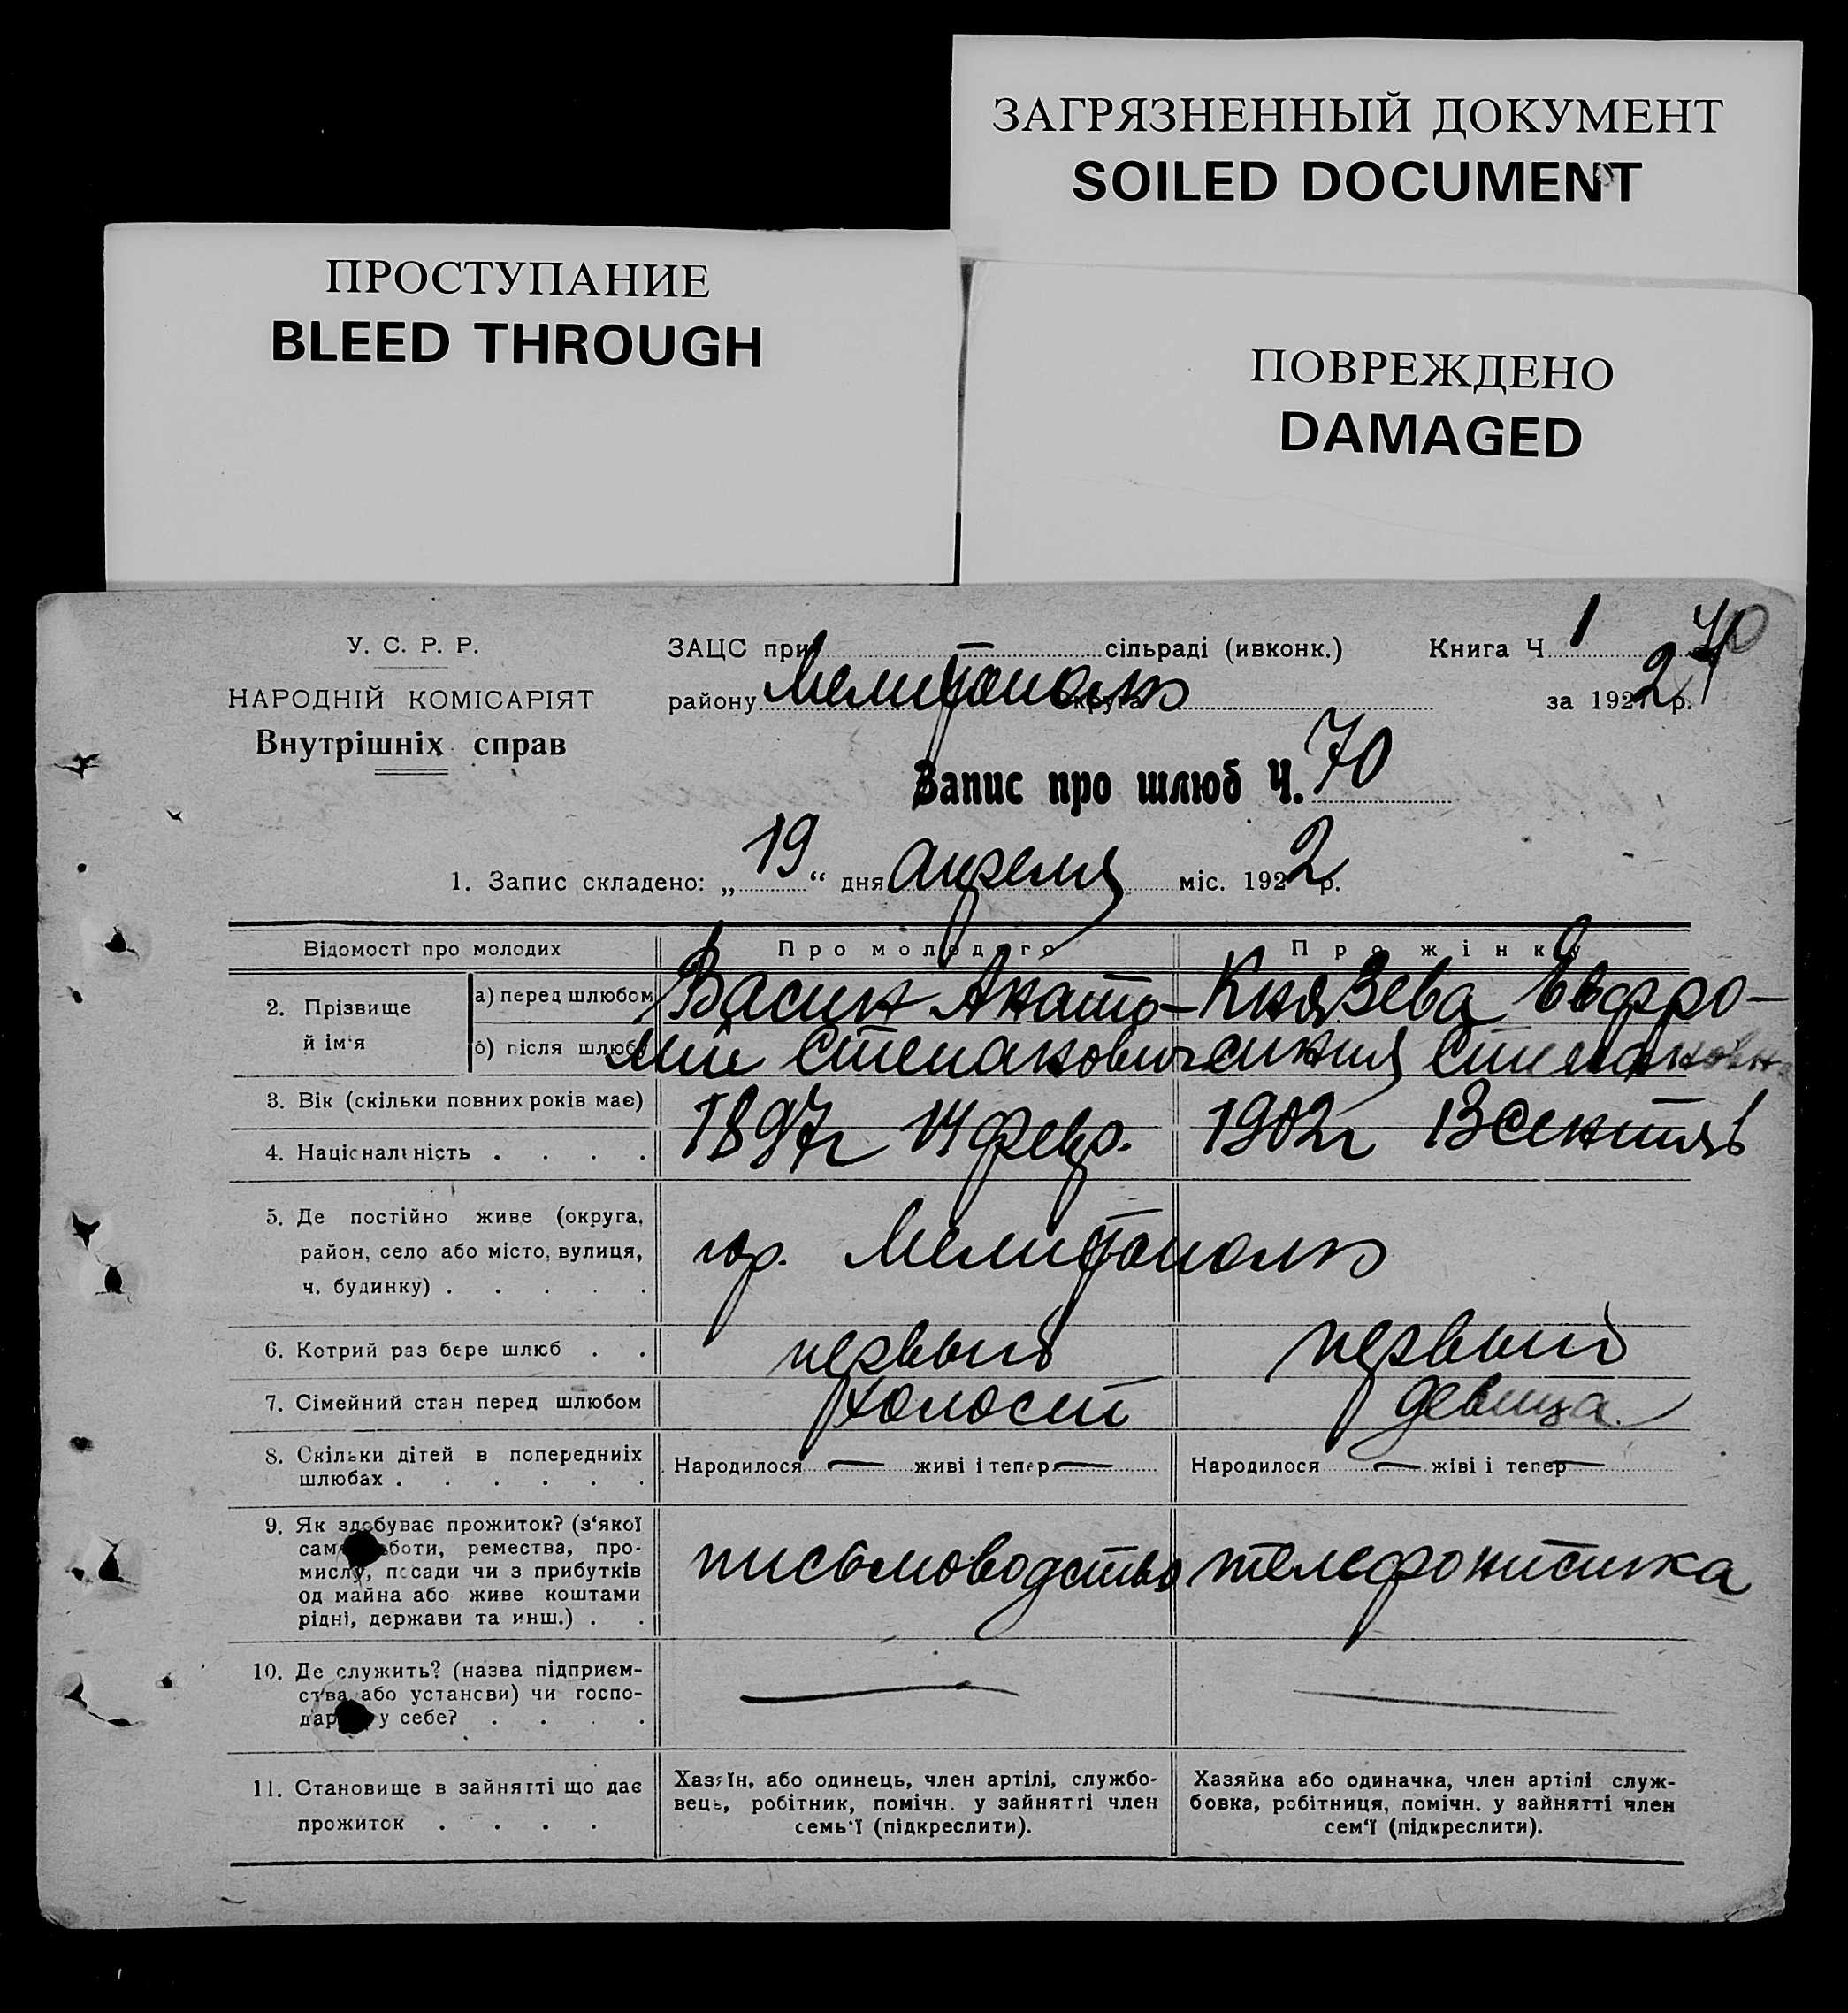 ЗАГРЯЗНЕННЫЙ ДОКУМЕНТ
SOILED DOCUMENT
ПРОСТУПАНИЕ
BLEED THROUGH
ПОВРЕЖДЕНО
DAMAGED
У. С. Р. Р.
НАРОДНІЙ КОМІСАРІЯТ
Внутрішніх справ
ЗАЦС при — сільраді (ивконк.) Книга Ч 1
району Мелитополь округа за 1922 р.
70
Запис про шлюб Ч. 70
1. Запис складено: „19“ дня апреля міс. 1922 р.
Відомості про молодих Про молодого Про жінку
2. Прізвище й ім‘я
а) перед шлюбом Васин Анато- Князева Евфро-
б) після шлюбу лий Степанович синия Степановна
3. Вік (скільки повних років має)
4. Національність . . . .
1897 г 14 февр. 1902 г 13 сентяб
5. Де постійно живе (округа,
район, село або місто, вулиця,
ч. будинку) . . . . .
гор. Мелитополь
6. Котрий раз бере шлюб . . первый первый
7. Сімейний стан перед шлюбом холост девица
8. Скільки дітей в попередниіх
шлюбах . . . . . .
Народилося — живі і тепер — Народилося — жіві і тепер —
9. Як здобуває прожиток? (з‘якої
сам боти, ремества, про-
мислу, посади чи з прибутків
од майна або живе коштами
рідні, держави та инш.) . .
письмоводство телефонистка
10. Де служить? (назва підприєм-
ства або установи) чи госпо-
дар у себе? . . . .
— —
11. Становище в зайнятті що дає
прожиток . . . .
Хазяїн, або одинець, член артілі, службо-
вець, робітник, помічн. у зайнятті член
семь‘ї (підкреслити).
Хазяйка або одиначка, член артілі служ-
бовка, робітниця, помічн. у зайнятті член
сем‘ї (підкреслити).